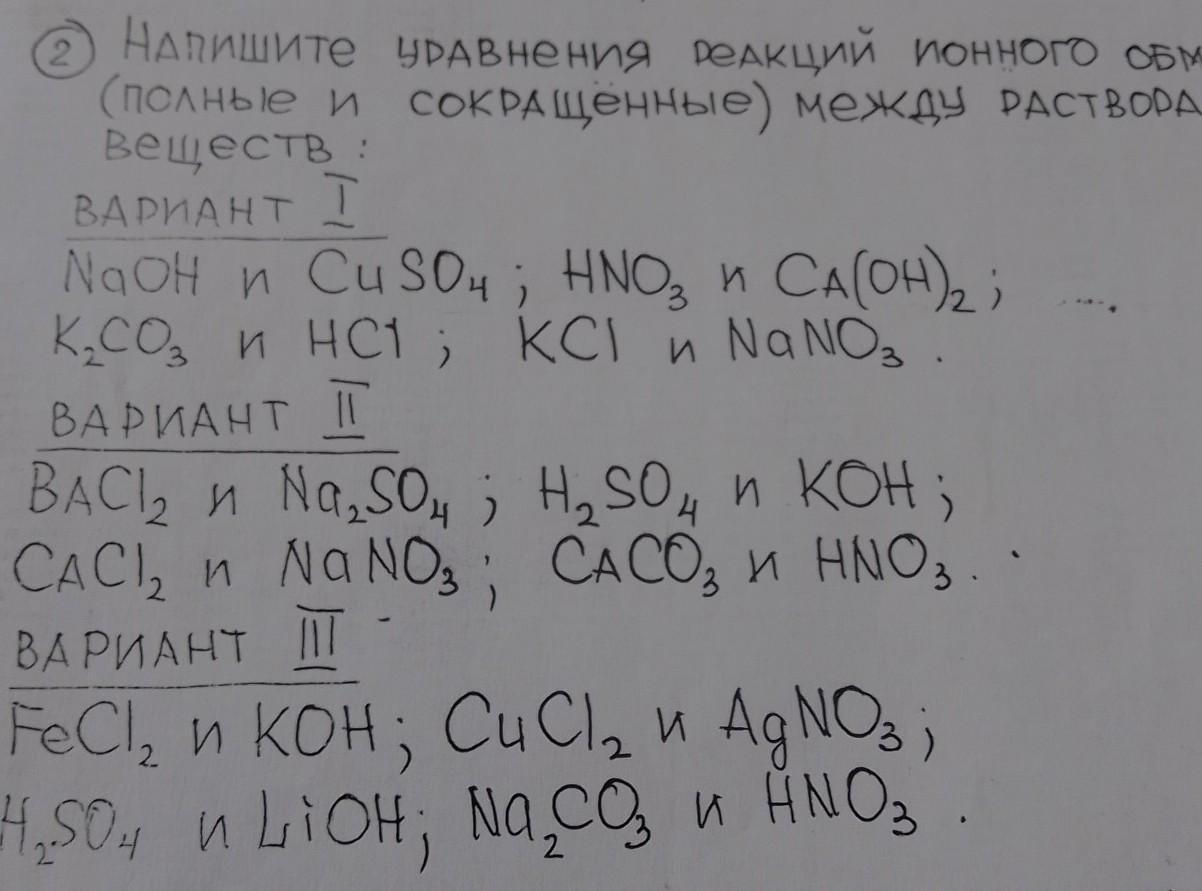 ② Напишите уравнения реакций ионного обм
(полные и сокращённые) между раствора
веществ:
Вариант I
NaOH и CuSO₄; HNO₃ и Ca(OH)₂; ....
K₂CO₃ и HCl; KCl и NaNO₃.
Вариант II
BaCl₂ и Na₂SO₄; H₂SO₄ и KOH;
CaCl₂ и NaNO₃; CaCO₃ и HNO₃.
Вариант III
FeCl₂ и KOH; CuCl₂ и AgNO₃;
H₂SO₄ и LiOH; Na₂CO₃ и HNO₃.